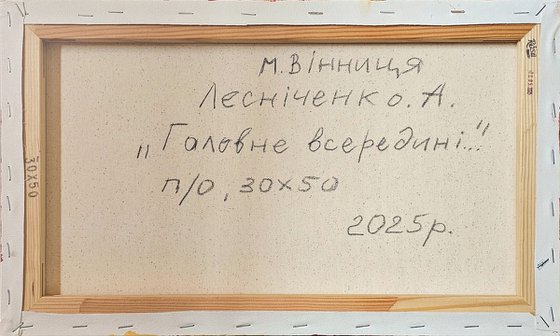 м. Вінниця
Лєсніченко. А.
„Головне всередині..."
п/о, 30х50
2025р.
30X50